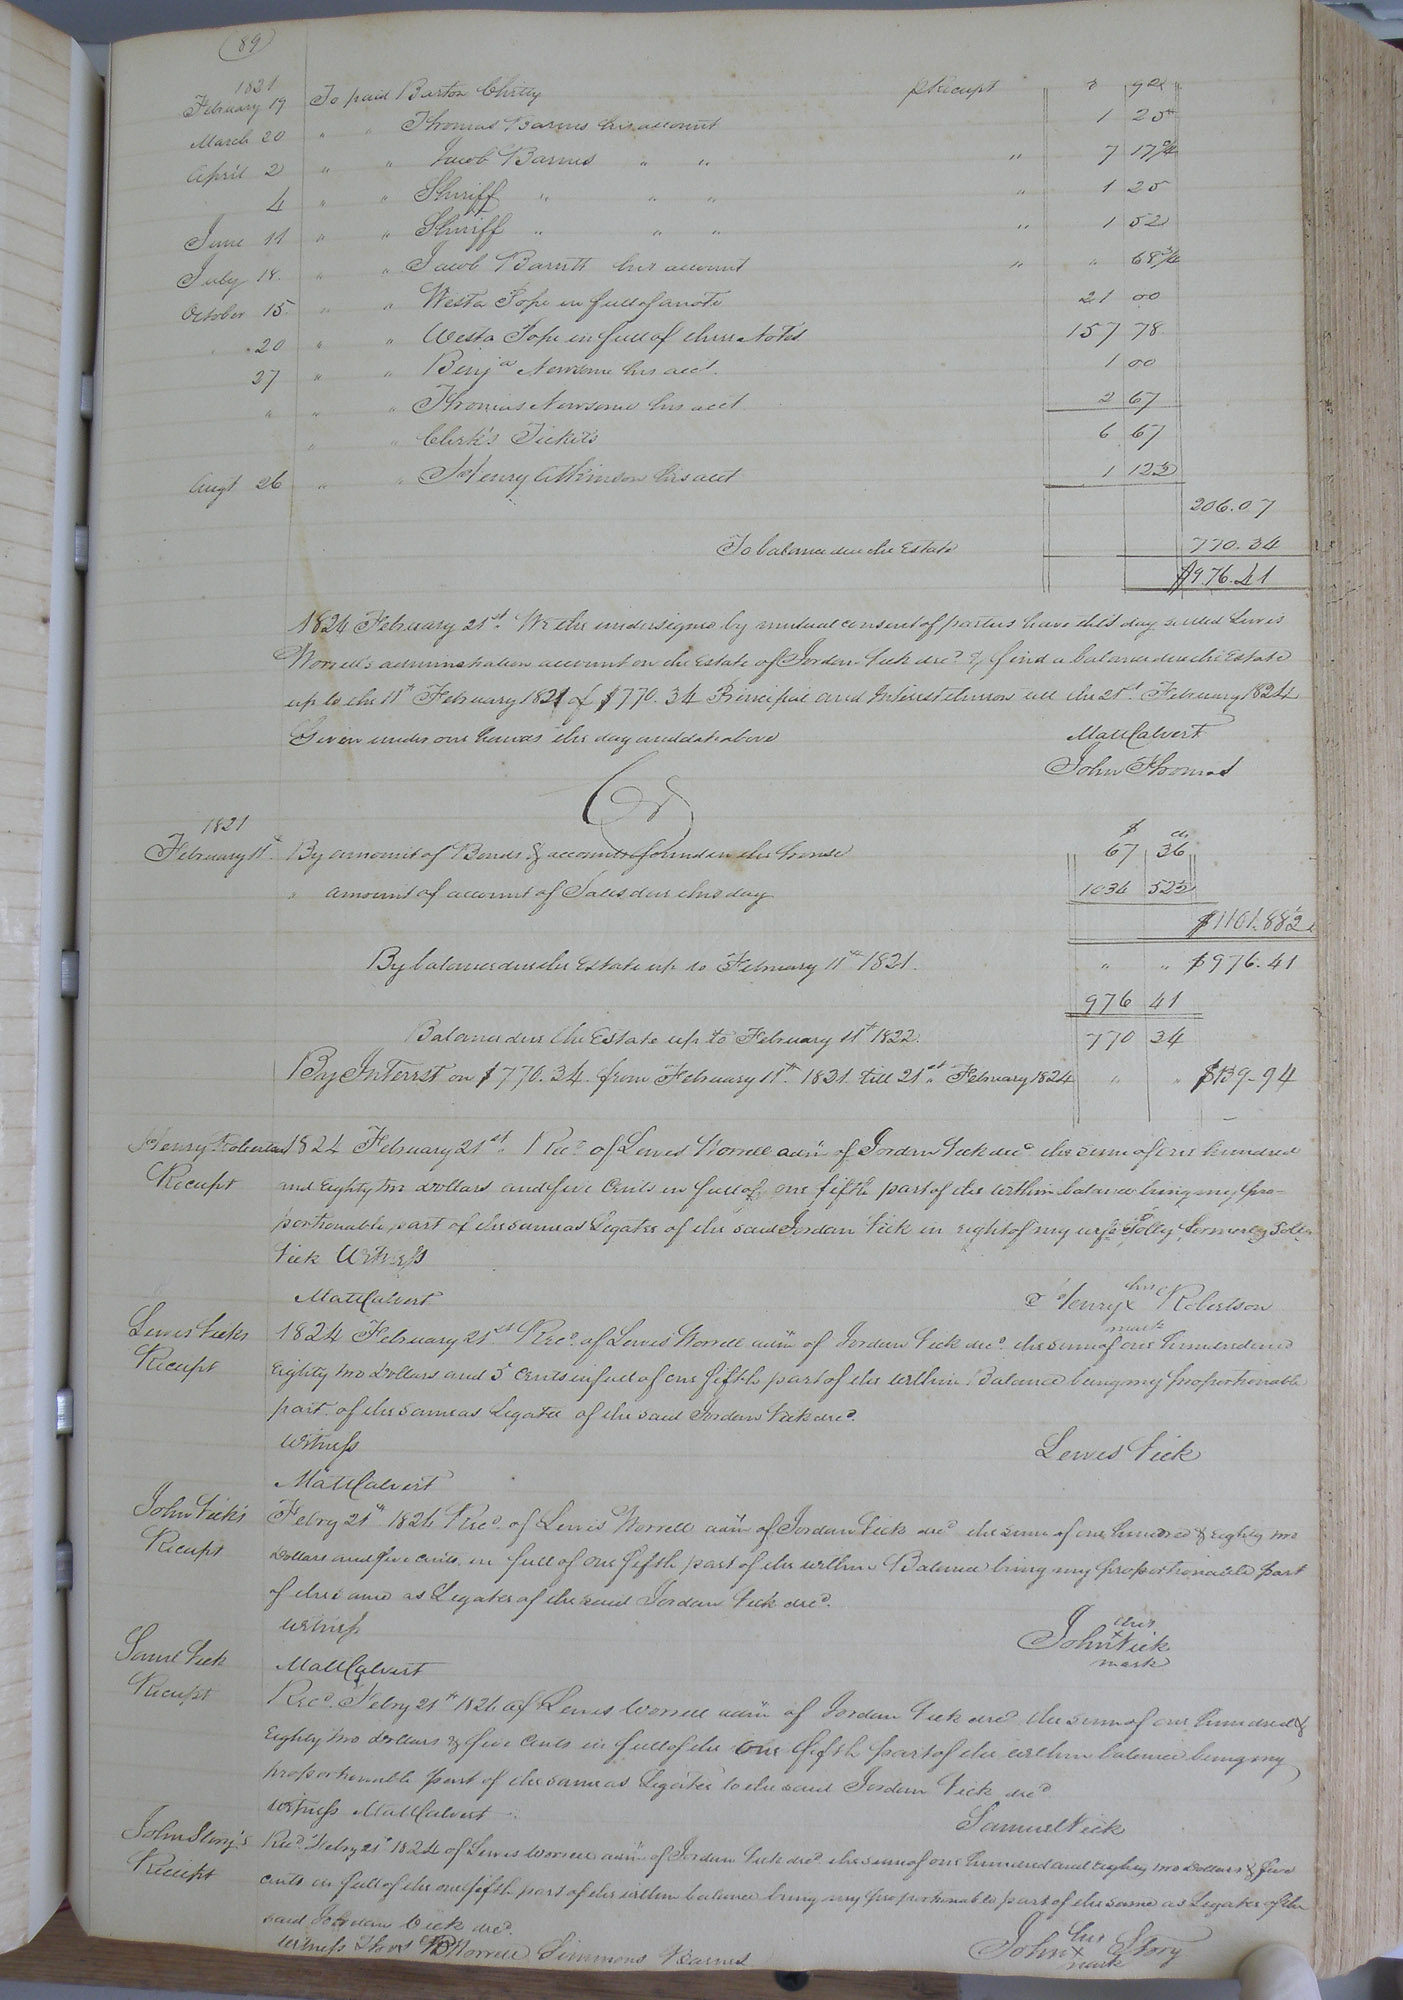 89
1821
February 19 To paid Barton Chitty p Receipt
March 20 " " Thomas Barnes his account 1 25
April 2 " " Jacob Barnes " " " 7 17
4 " " Sheriff " " " " 1 25
June 11 " " Sheriff " " " " 1 52
July 18 " " Jacob Barrett his account " " 68¾
October 15 " " Westa Pope in full of a note 21 00
" 20 " " Westa Pope in full of three Notes 157 78
27 " " Benja Newsome his acct. 1 00
" " " Thomas Newsome his acct 2 67
" " Clerk's Tickets 6 67
Augt 26 " " Henry Atkinson his acct 1 12½
206.07
To balance due the Estate 770.34
$976.41
1824 February 21st. We the undersigned by mutual consent of parties have this day settled Lewis
Worrell's administration account on the Estate of Jordan Vick decd & find a balance due the Estate
up to the 11th February 1821 of $770.34 Principal and Interest thereon till the 21st February 1824
Given under our hands the day and date above Matt Calvert
John Thomas
Cr
1821 $ cts
February 11th By amount of Bonds & accounts found in the house 67 36
" amount of account of Sales due this day 1034 52½
$1101.88½
By balance due the Estate up to February 11th 1821. " " $976.41
976 41
Balance due the Estate up to February 11th 1822. 770 34
By Interest on $770.34 from February 11th 1831 till 21st February 1824 " " $139-94
Henry Robertson 1824 February 21st. Recd of Lewis Worrell adm of Jordan Vick decd the sum of one hundred
Receipt and Eighty two dollars and five Cents in full of one fifth part of the within balance being my pro-
portionable part of the same as Legatee of the said Jordan Vick in right of my wife Polly formerly Polly
Vick Witness
Matt Calvert Henry his x mark Robertson
Lewis Vicks 1824 February 21st Recd. of Lewis Worrell adm of Jordan Vick decd. the sum of one hundred and
Receipt Eighty two Dollars and 5 Cents in full of one fifth part of the within Balance being my proportionable
part of the same as Legatee of the said Jordan Vick decd.
Witness Lewis Vick
Matt Calvert
John Vick's Febry 21st 1824 Recd. of Lewis Worrell adm of Jordan Vick decd the sum of one hundred & Eighty two
Receipt Dollars and five Cents in full of one fifth part of the within Balance being my proportionable part
of the same as Legatee of the said Jordan Vick decd.
Witness John his x mark Vick
Matt Calvert
Saml Vick Recd. Febry 21st 1824 of Lewis Worrell adm of Jordan Vick decd the sum of one hundred &
Receipt Eighty two dollars & five Cents in full of the one fifth part of the within balance being my
proportionable part of the same as Legatee to the said Jordan Vick decd
Witness Matt Calvert Samuel Vick
John Story's Recd. Febry 21st 1824 of Lewis Worrell adm of Jordan Vick decd the sum of one hundred and Eighty two Dollars & five
Receipt cents in full of the one fifth part of the within balance being my proportionable part of the same as Legatee of the
said Jordan Vick decd.
Witness Thos Worrell Simmons Barnes John his x mark Story